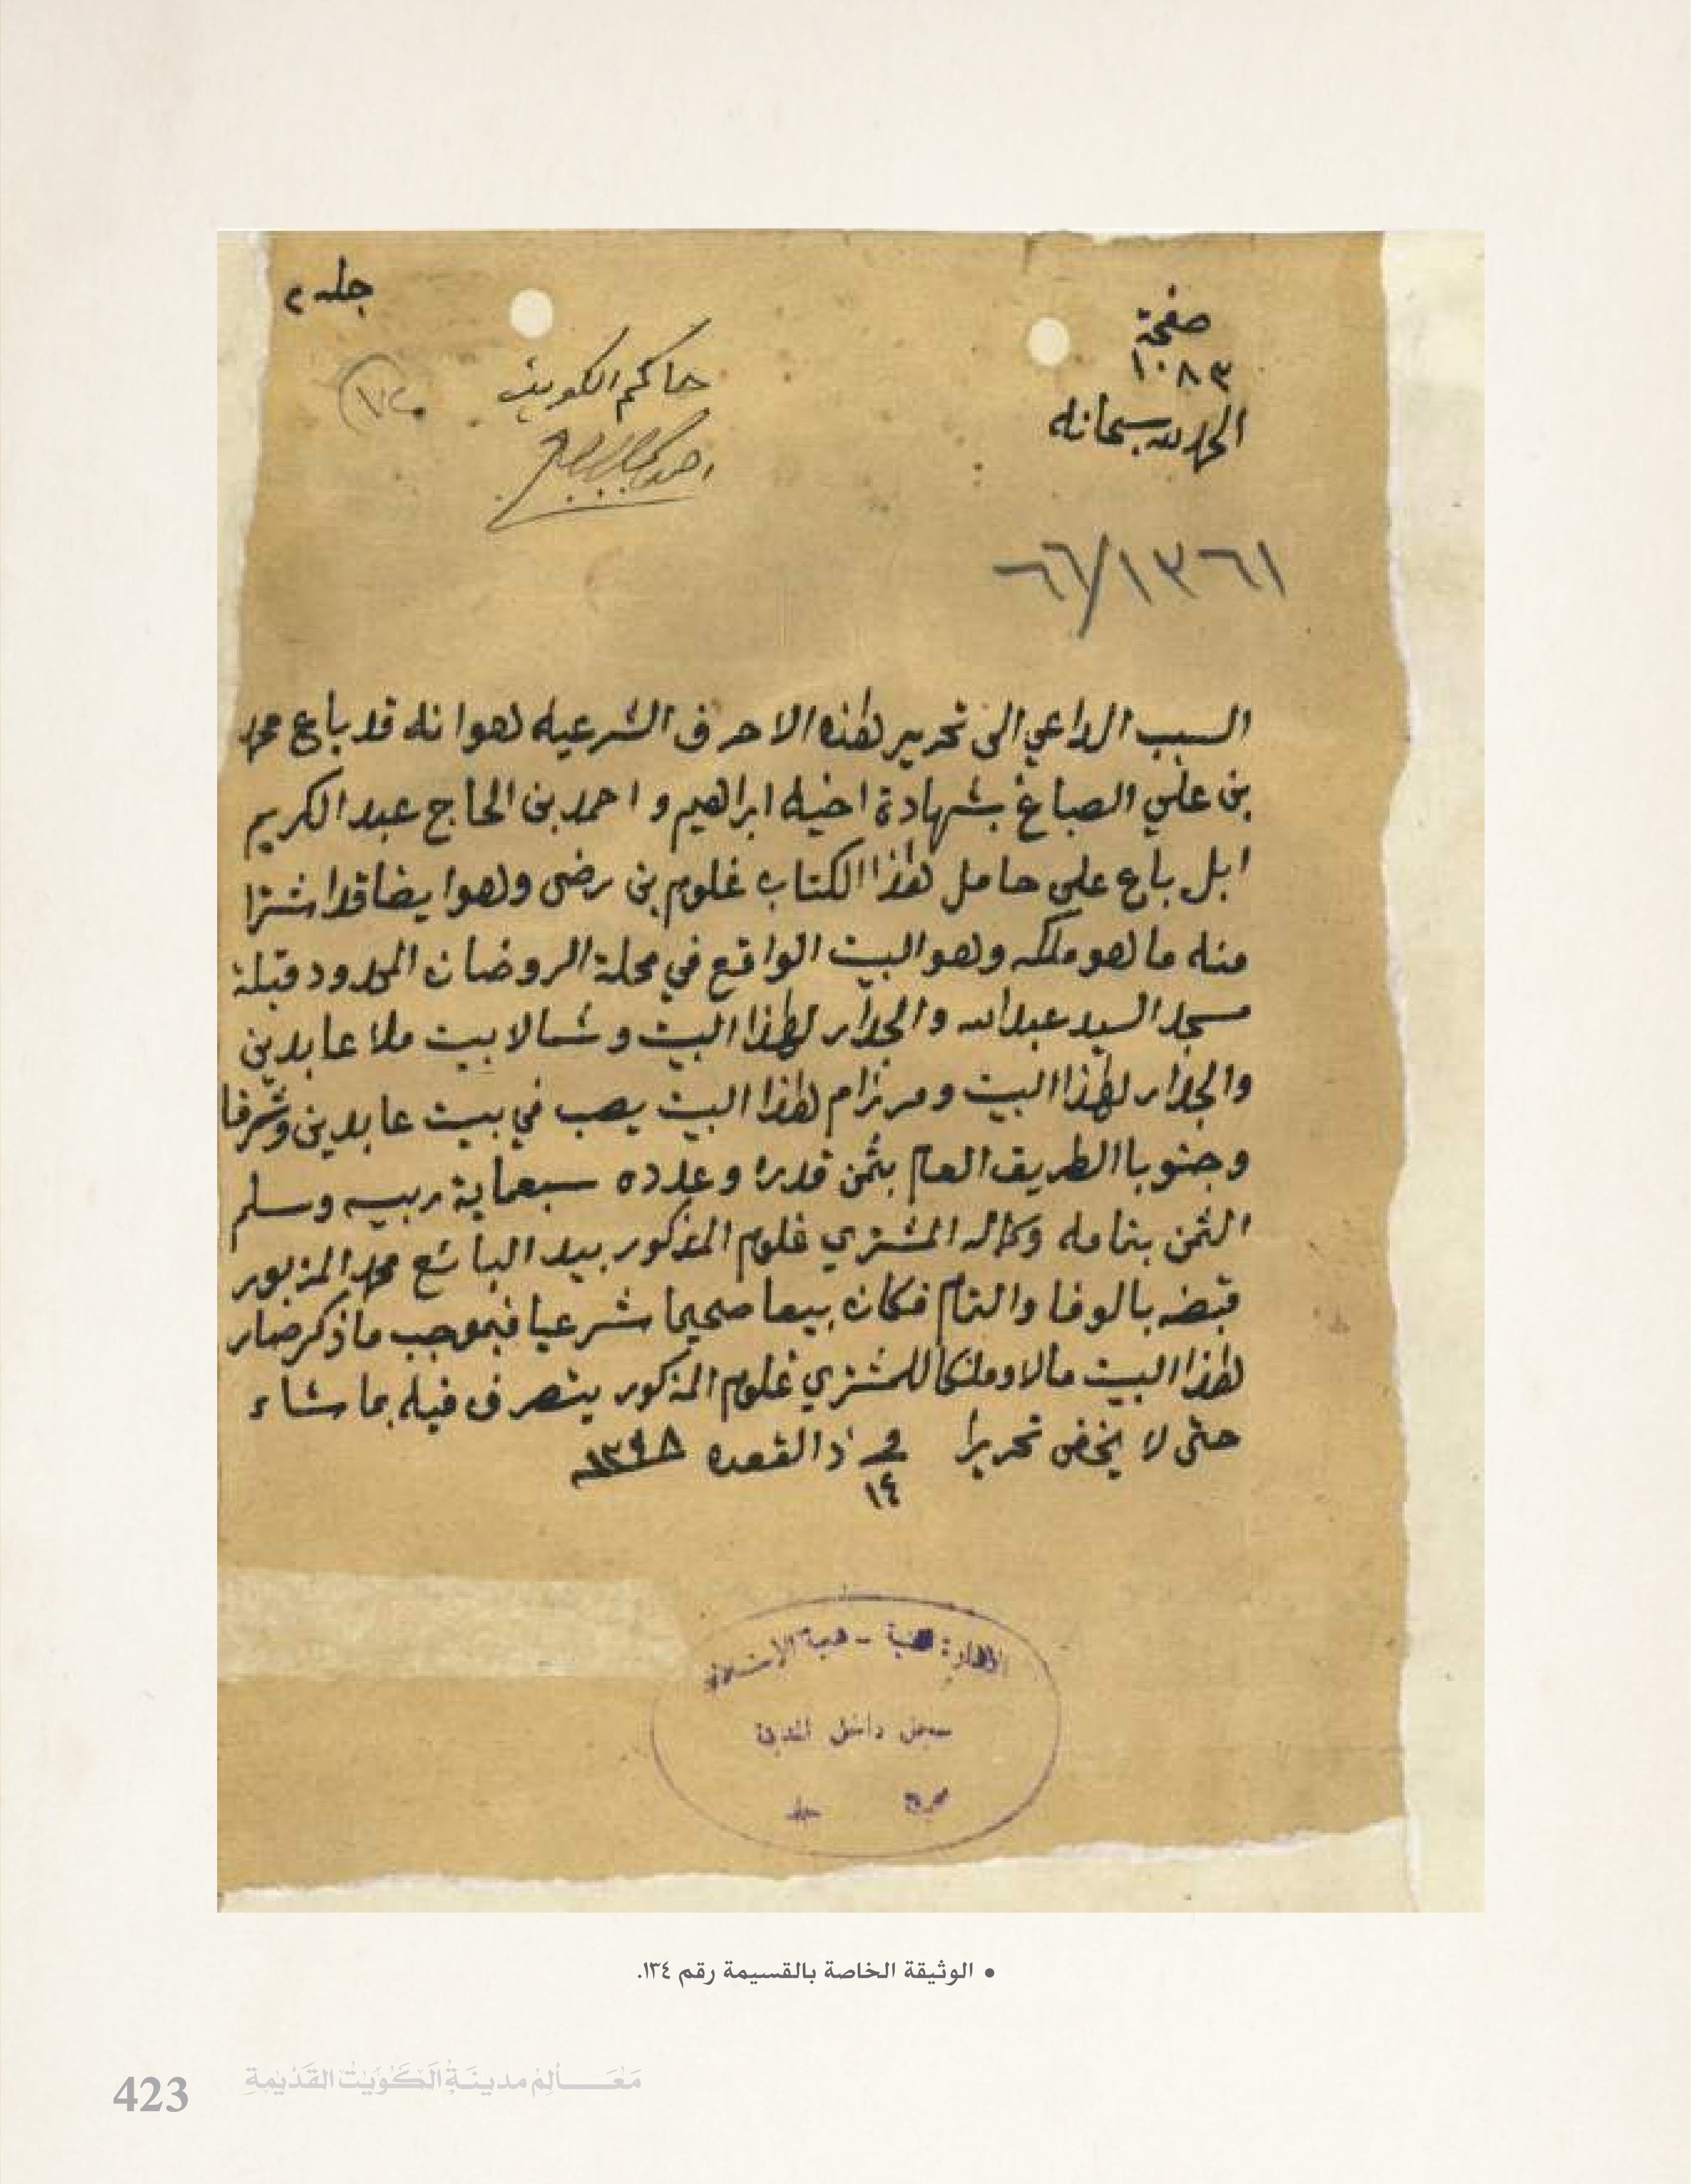 جلد ٢
صفحة
١٠٨٣
حاكم الكويت
الحمد لله سبحانه
٦٦/١٣٦١
السبب الداعي الى تحرير هذه الاحرف الشرعيه هو انه قد باع محمد
بن علي الصباغ بشهادة اخيه ابراهيم و احمد بن الحاج عبد الكريم
ابل باع على حامل هذا الكتاب غلوم بن رضى وهو ايضا قد اشترا
منه ما هو ملكه وهو البيت الواقع في محلة الروضان المحدود قبلة
مسجد السيد عبدالله والجدار لهذا البيت وشمالا بيت ملا عابدين
والجدار لهذا البيت ومرزام هذا البيت يصب في بيت عابدين وشرقا
وجنوبا الطريق العام بثمن قدره وعدده سبعماية ربيه وسلم
الثمن بتمامه وكماله المشتري غلوم المذكور بيد البائع محمد المزبور
قبضه بالوفا والتمام فكان بيعا صحيحا شرعيا فبموجب ما ذكر صار
هذا البيت مالا وملكا للمشتري غلوم المذكور يتصرف فيه بما شاء
حتى لا يخفى تحريرا في ١٤ ذالقعده ١٣٤٨
سجل داخل المدينة
• الوثيقة الخاصة بالقسيمة رقم ١٣٤.
مَعَالِم مدينَةِ الكُوَيْت القَدْيمةِ
423